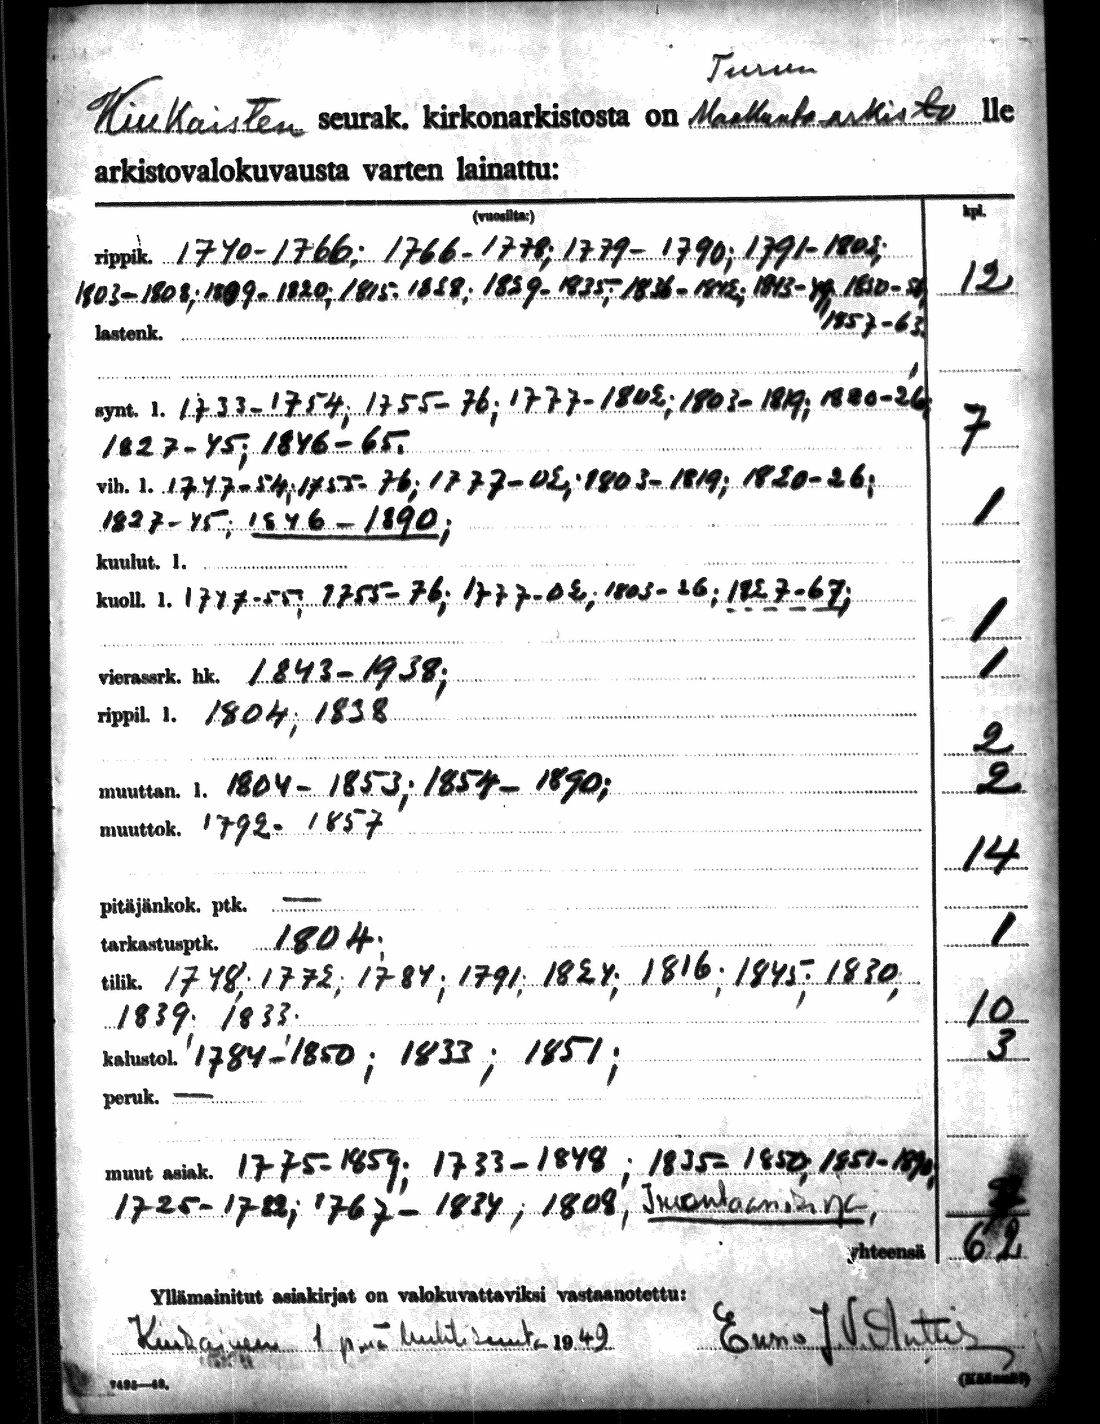 Turun
Kiukaisten seurak. kirkonarkistosta on Maakunta-arkisto lle
arkistovalokuvausta varten lainattu:
(vuosilta:) kpl.
rippik. 1740-1766; 1766-1778; 1779-1790; 1791-1802;
1803-1808; 1809-1820; 1815- 1828; 1829-1835; 1836-1842; 1843-49, 1850-56, 12
1857-63.
lastenk.
synt. l. 1733-1754; 1755-76; 1777-1802; 1803-1819; 1820-26;
1827-45; 1846-65. 7
vih. l. 1747-54; 1755-76; 1777-02; 1803-1819; 1820-26;
1827-45; 1846-1890; 1
kuulut. l.
kuoll. l. 1747-55; 1755-76; 1777-02; 1803-26; 1827-67;
1
vierassrk. hk. 1843-1938; 1
rippil. l. 1804; 1838
2
muuttan. l. 1804-1853; 1854-1890; 2
muuttok. 1792- 1857
14
pitäjänkok. ptk. —
tarkastusptk. 1804; 1
tilik. 1748; 1772; 1784; 1791; 1824; 1816; 1845; 1830,
1839; 1833. 10
kalustol. 1784-1850; 1833; 1851; 3
peruk. —
muut asiak. 1775-1859; 1733-1848; 1835- 1850; 1851-1890;
1725-1782; 1767-1834; 1808,
yhteensä 62
Yllämainitut asiakirjat on valokuvattaviksi vastaanotettu:
Kiukainen 1 p:nä huhtikuuta 1949
7495—48. (Käännä!)